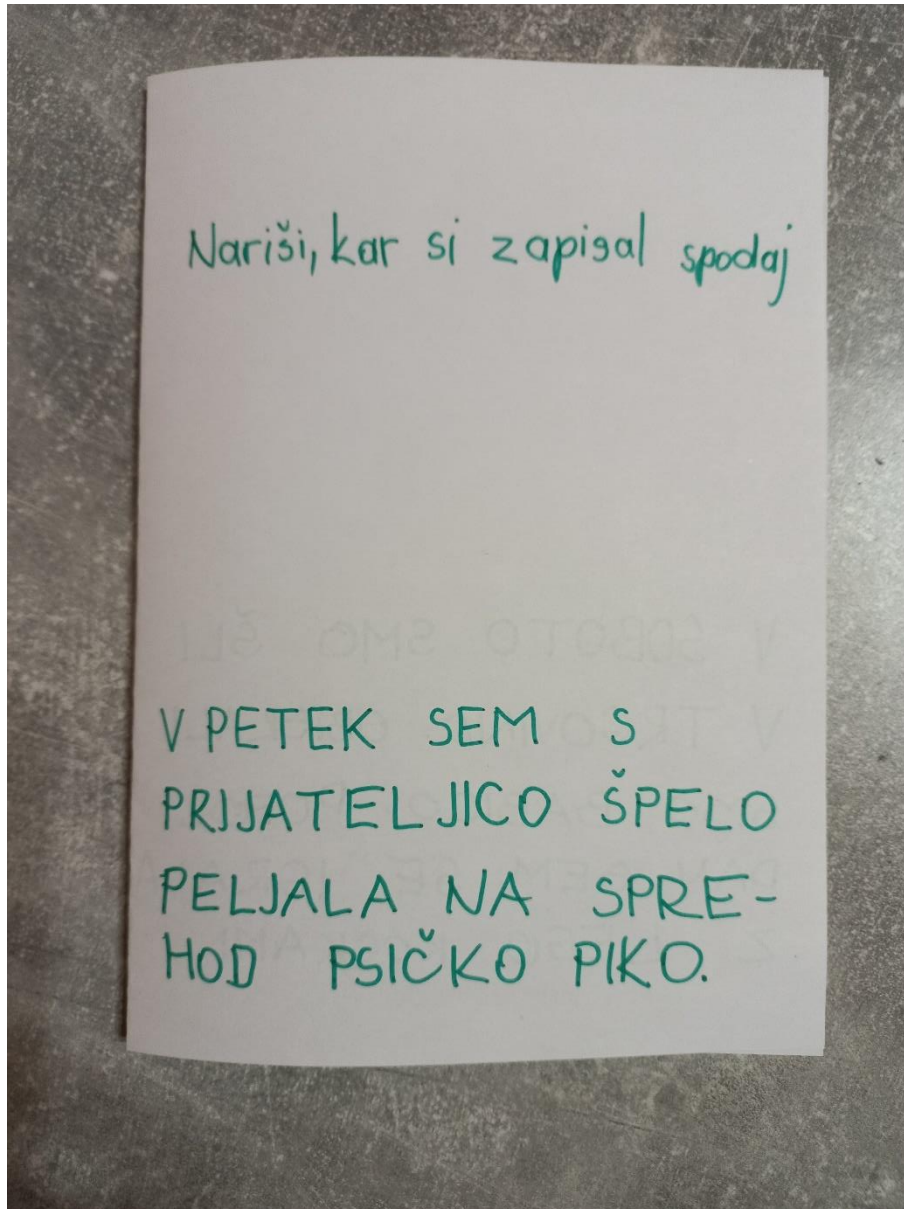 Nariši, kar si zapisal spodaj
V PETEK SEM S
PRIJATELJICO ŠPELO
PELJALA NA SPRE-
HOD PSIČKO PIKO.
V SOBOTO SMO ŠLI